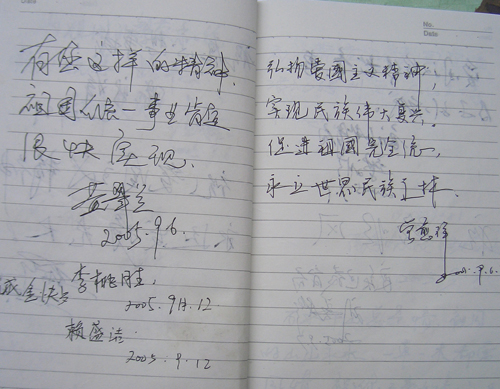 有您这样的精神,
祖国统一事业肯定
很快实现.
2005.9.6.
李桃胜,
2005.9月.12
赖盛洁.
2005.9.12
No.
Date
弘扬爱国主义精神,
实现民族伟大复兴.
促进祖国完全统一,
永立世界民族之林.
2005.9.6.